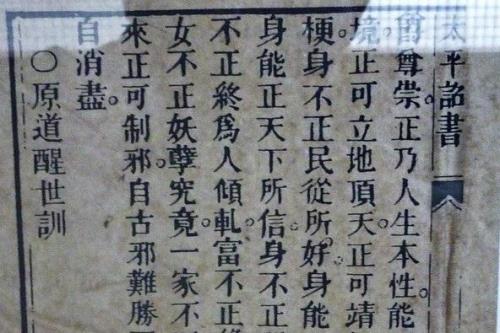 太平詔書
尊崇。正乃人生本性能
境。正可立地頂天。正可靖
梗。身不正民從所好。身能
身能正天下所信。身不正
不正終爲人傾軋。富不正終
女不正妖孽究竟。一家不
來正可制邪。自古邪難勝
自消盡。
〇原道醒世訓